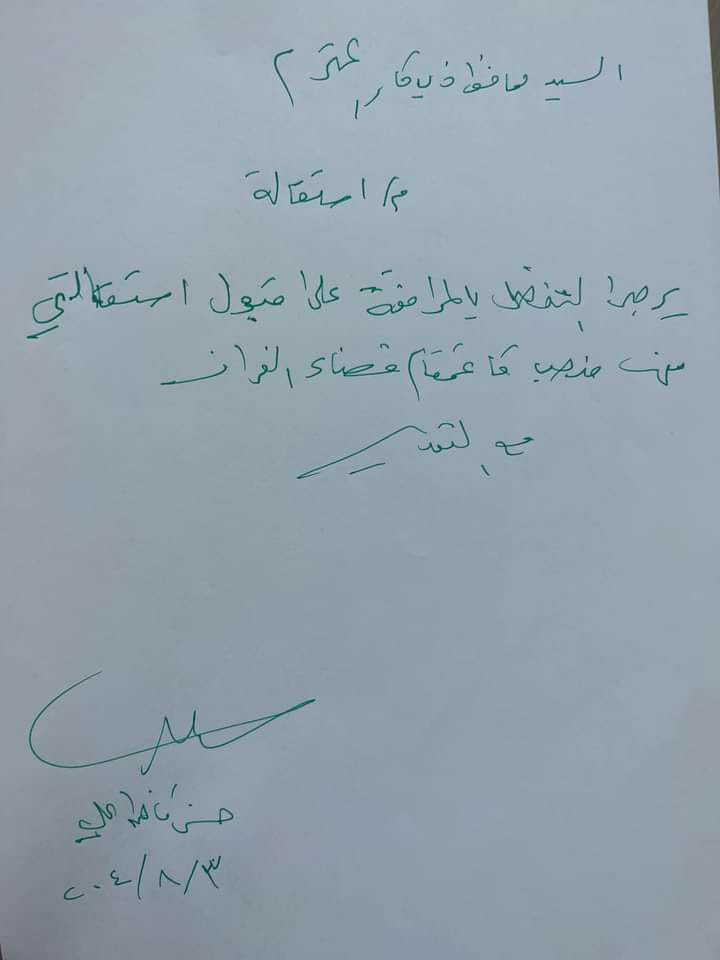 السيد محافظ ذي قار المحترم
م/ استقالة
يرجى التفضل بالموافقة على قبول استقالتي
من منصب قائممقام قضاء
مع التقدير
حسن
٣/٨/٢٠٤